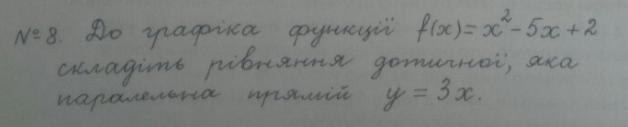 №8. До графіка функції f(x)=x²-5x+2
складіть рівняння дотичної, яка
паралельна прямій y=3x.